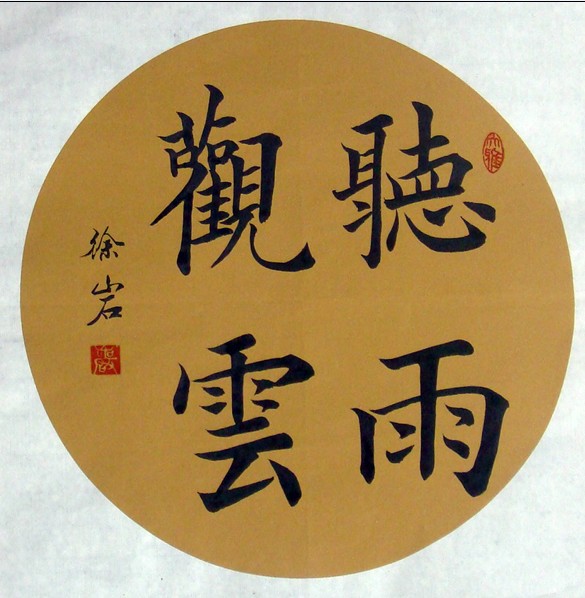 聽雨
觀雲
徐岩